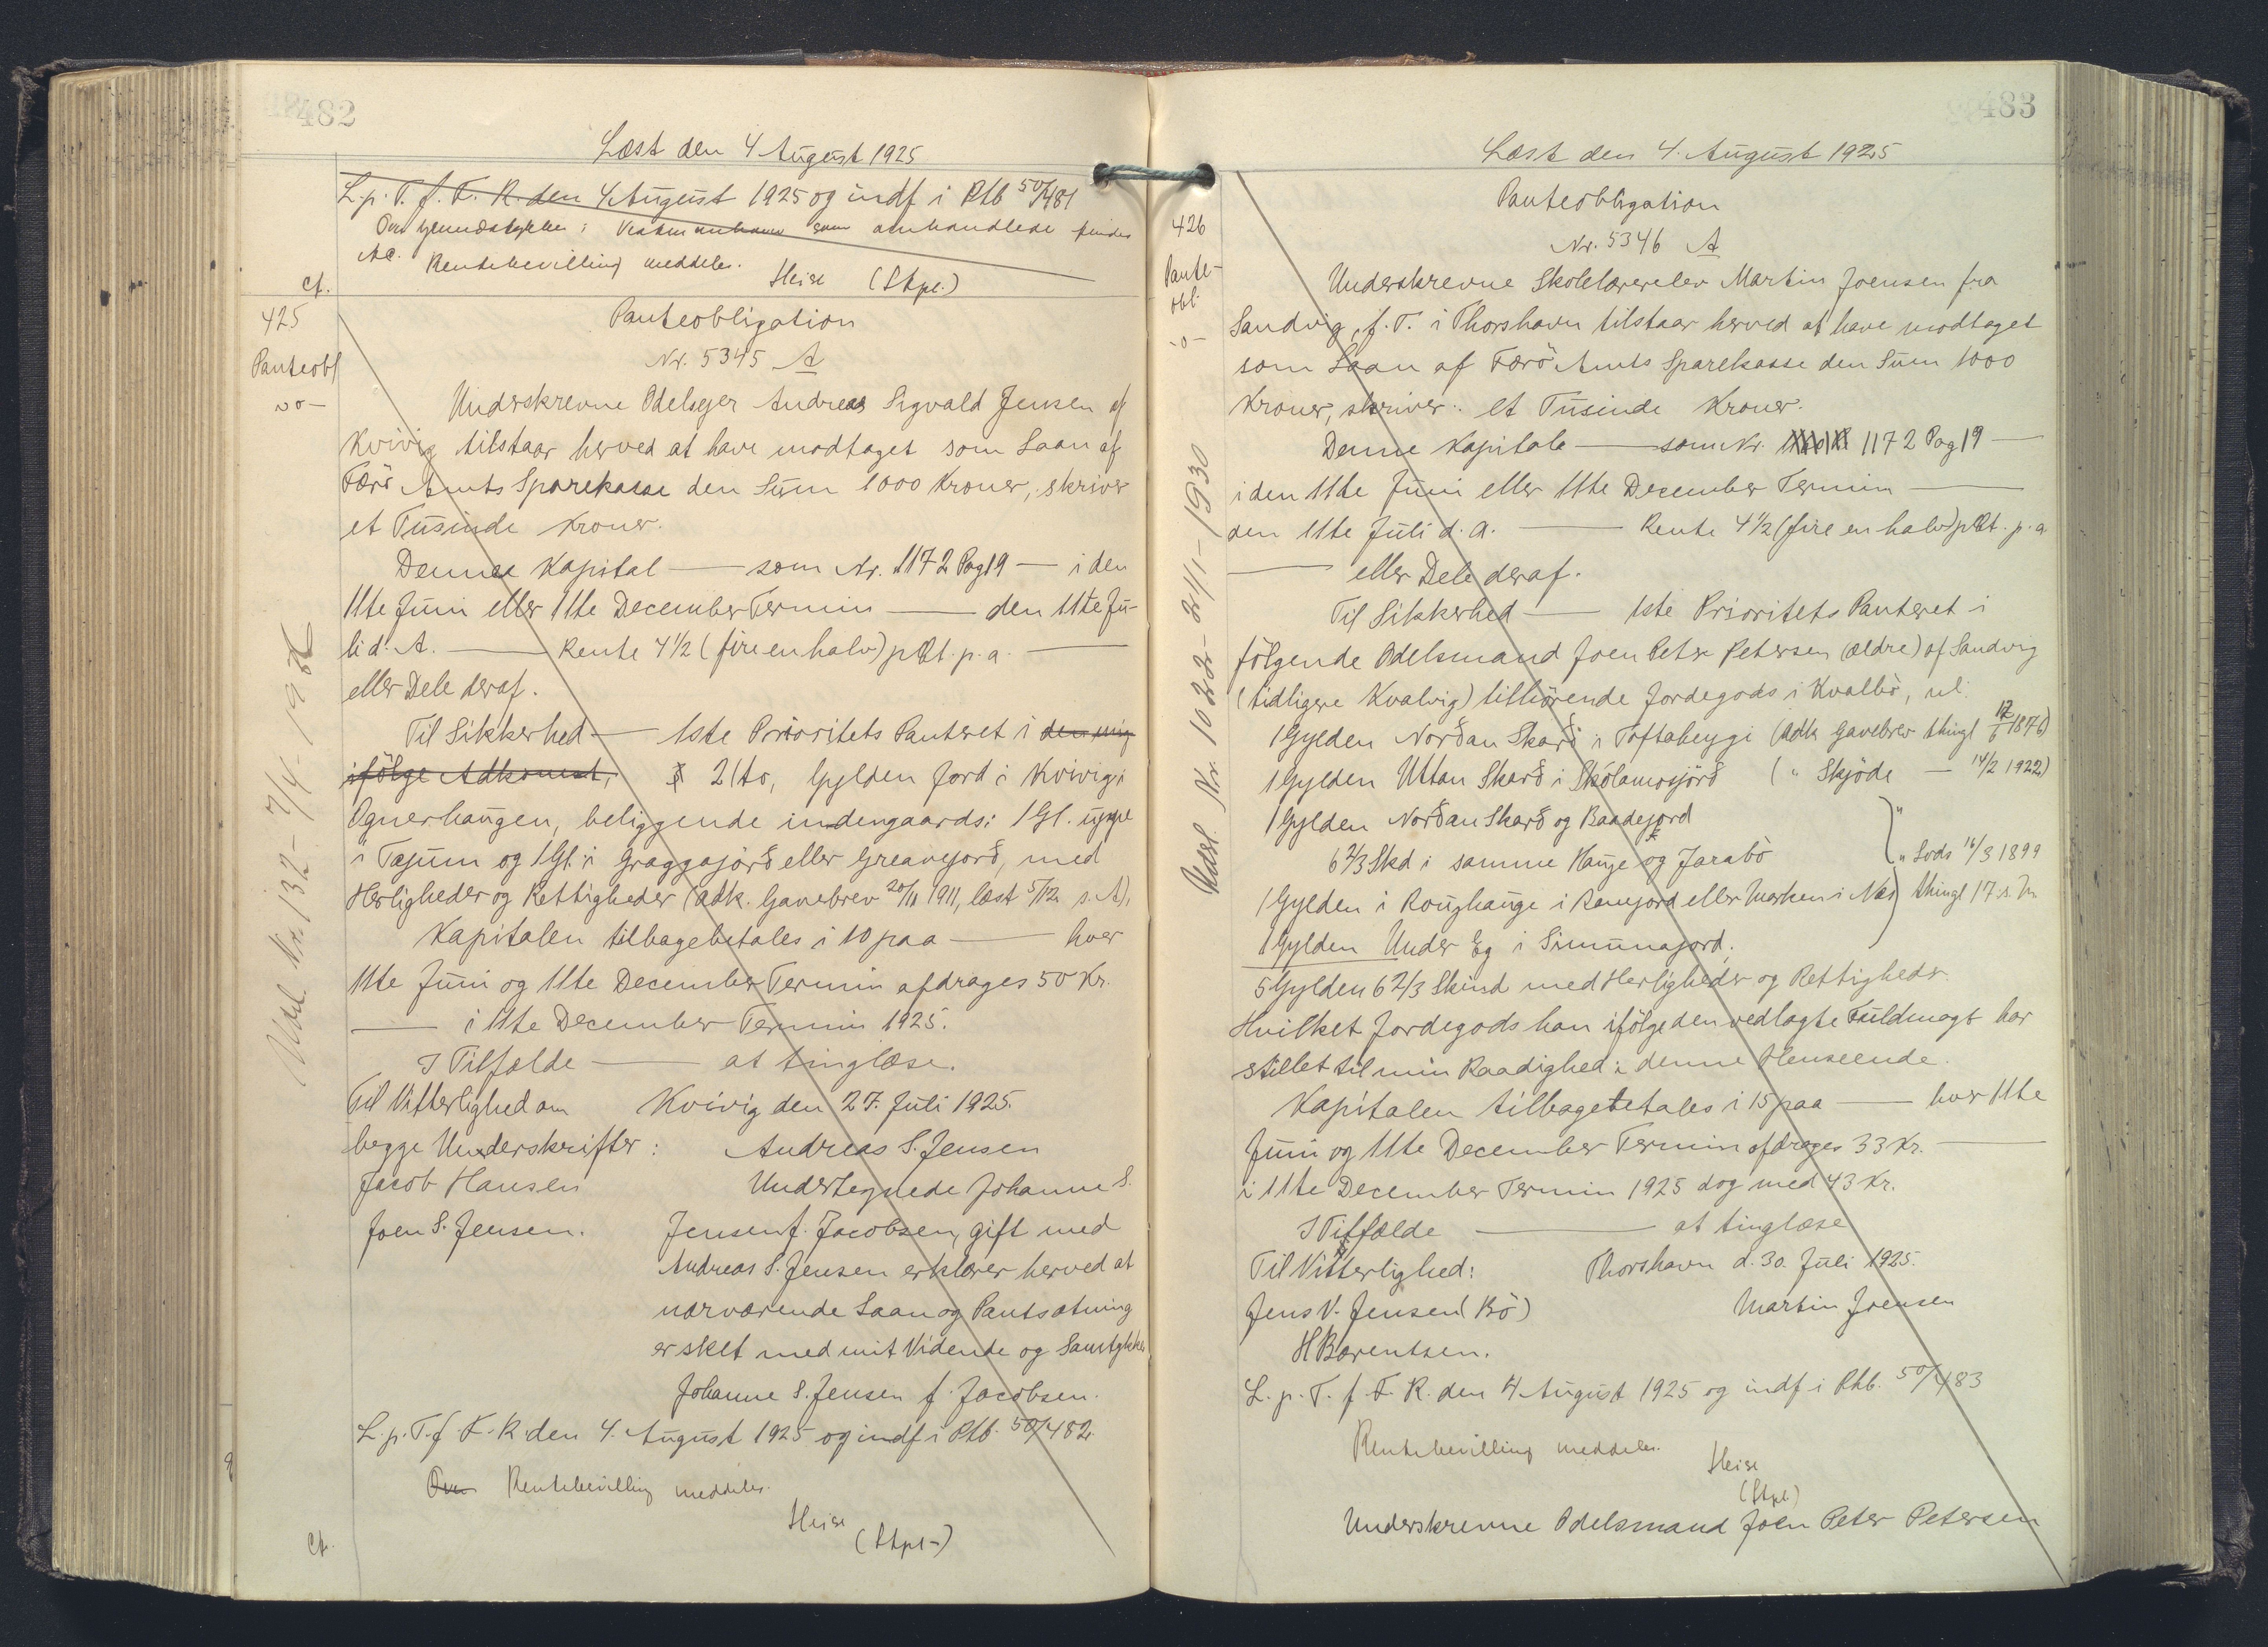 482
Læst den 4 August 1925
L. p. T. f. F. R. den 4 August 1925 og indf i Ptb 50/481
Rentebevilling meddeles.
Heise (Stpl.)
Ct.
425
Panteobl
Panteobligation
Nr. 5345 A
Underskrevne Odelsejer Andreas Sigvald Jensen af
Kvivig tilstaar herved at have modtaget som Laan af
Færö Amts Sparekasse den Sum 1000 Kroner, skriver
et Tusinde Kroner.
Denne Kapital — som Nr. 1172 Pag 19 — i den
11te Juni eller 11te December Termin — den 11te Ju-
li d. A. — Rente 4 1/2 (fire en halv) pCt. p. a. —
eller Dele deraf.
Til Sikkerhed — 1ste Prioritets Panteret i den mig
ifölge Adkomst, 2, to, Gylden Jord i Kvivig i
Ognerhaugen, beliggende indengaards: 1 Gl. uppe
i Tæjum og 1 Gl. i Graggajörð eller Greavejorð, med
Herligheder og Rettigheder (Adk. Gavebrev 20/11 1911, læst 5/12 s. A).
Kapitalen tilbagebetales i 10 paa — hver
11te Juni og 11te December Termin afdrages 50 Kr.
— i 11te December Termin 1925.
I Tilfælde — at tinglæse.
Til Vitterlighed om Kvivig den 27. Juli 1925.
begge Underskrifter: Andreas S. Jensen
Jacob Hansen Undertegnede Johanne S.
Joen S. Jensen. Jensen f. Jacobsen, gift med
Andreas S. Jensen erklærer herved at
nærværende Laan og Pantsætning
er sket med mit Vidende og Samtykke
Johanne S. Jensen f. Jacobsen.
L. p. T. f. F. R. den 4. August 1925 og indf i Ptb. 50/482.
Over Rentebevilling meddeles.
Heise
(Stpl.)
Ct.
Udsl. Nr. 132 - 7/4 - 193
483
Læst den 4. August 1925
426
Pante-
obl.
Panteobligation
Nr. 5346 A
Underskrevne Skolelærerelev Martin Joensen fra
Sandvig, f. T. i Thorshavn tilstaar herved at have modtaget
som Laan af Færö Amts Sparekasse den Sum 1000
Kroner, skriver: et Tusinde Kroner.
Denne Kapitals — som Nr. 1172 Pag 19 —
i den 11te Juni eller 11te December Termin —
den 11te Juli d. A. — Rente 4 1/2 (fire en halv) pCt. p. a
— eller Dele deraf.
Til Sikkerhed — 1ste Prioritets Panteret i
fölgende Odelsmand Joen Peter Petersen (ældre) af Sandvig
(tidligere Kvalvig) tilhörende Jordegods i Kvalbö, nl.
1 Gylden Norðan Skarð i Toftabeygi (Adk Gavebrev thingl 1876)
1 Gylden Uttan Skarð i Skólamosjörð (" Skjöde — 14/2 1922)
1 Gylden Norðan Skarð og Baadejord "
6 2/3 Skd i samme Hauge og Jarabö " Lods 16/3 1899
1 Gylden i Roughauge i Ramjord eller Marken i Næs thingl 17 s. M
1 Gylden Under Eg i Simunajord.
5 Gylden 6 2/3 Skind med Herligheder og Rettigheder.
Hvilket Jordegods han ifölge den vedlagte Fuldmagt har
stillet til min Raadighed i denne Henseende.
Kapitalen tilbagebetales i 15 paa — hver 11te
Juni og 11te December Termin afdrages 33 Kr. —
i 11te December Termin 1925 dog med 43 Kr.
I Tilfælde — at tinglæse
Til Vitterlighed: Thorshavn d. 30. Juli 1925.
Jens V. Jensen (Bö) Martin Joensen
H Barentsen.
L. p. T. f. F. R. den 4 August 1925 og indf i Ptb. 50/483
Rentebevilling meddeles.
Heise
(Stpl.)
Underskrevne Odelsmand Joen Peter Petersen
Udsl. Nr. 1022 - 21/1 - 1930